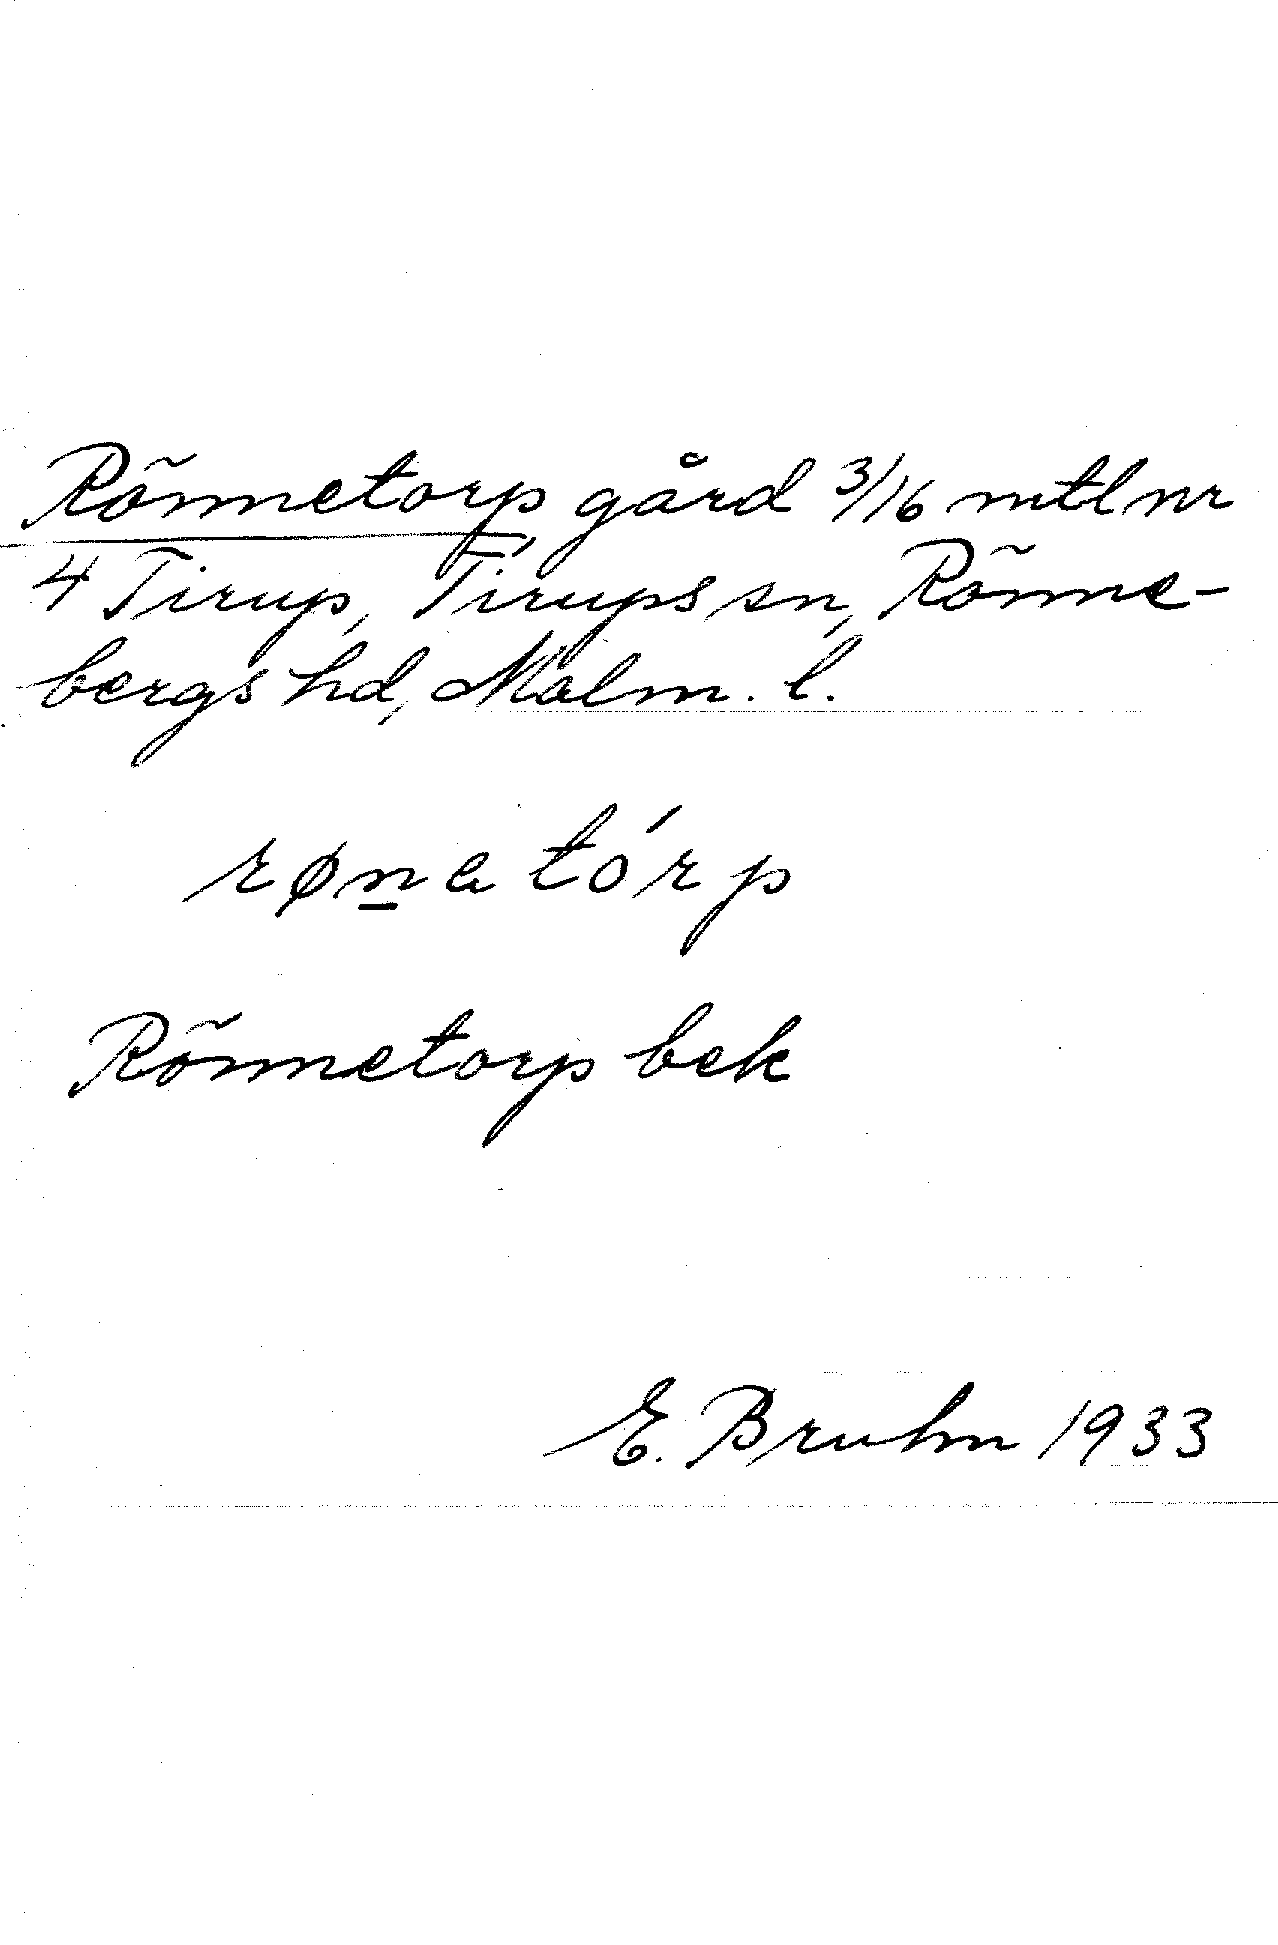 Rönnetorp gård 3/16 mtl nr
4 Tirup, Tirups sn, Rönne-
bergs hd, Malm. l.
røn̲atórp
Rönnetorp bek
E. Bruhn 1933